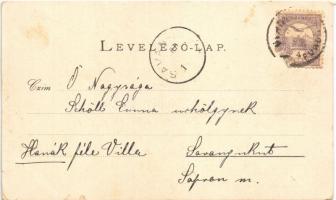 LEVELEZŐ-LAP.
Czím Ő Nagysága
Schöll Emma úrhölgynek
Hanák féle Villa Savanyukút
Sopron m.